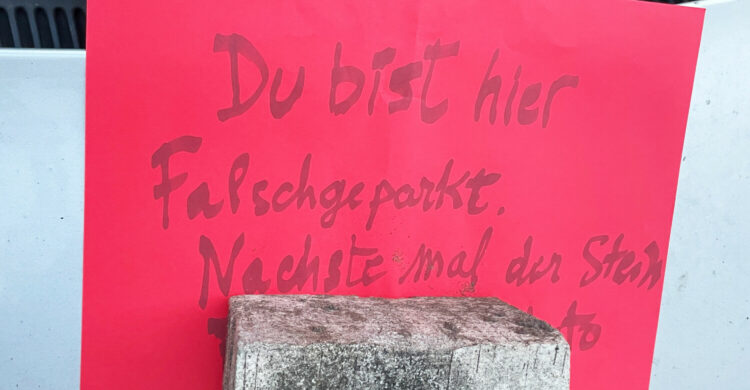 Du bist hier
Falschgeparkt.
Nachste mal der Stein